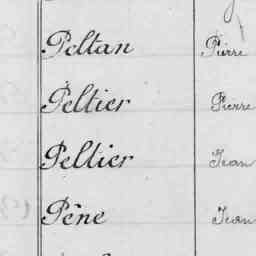 Peltan Pierre
Peltier Pierre
Peltier Jean
Pène Jean